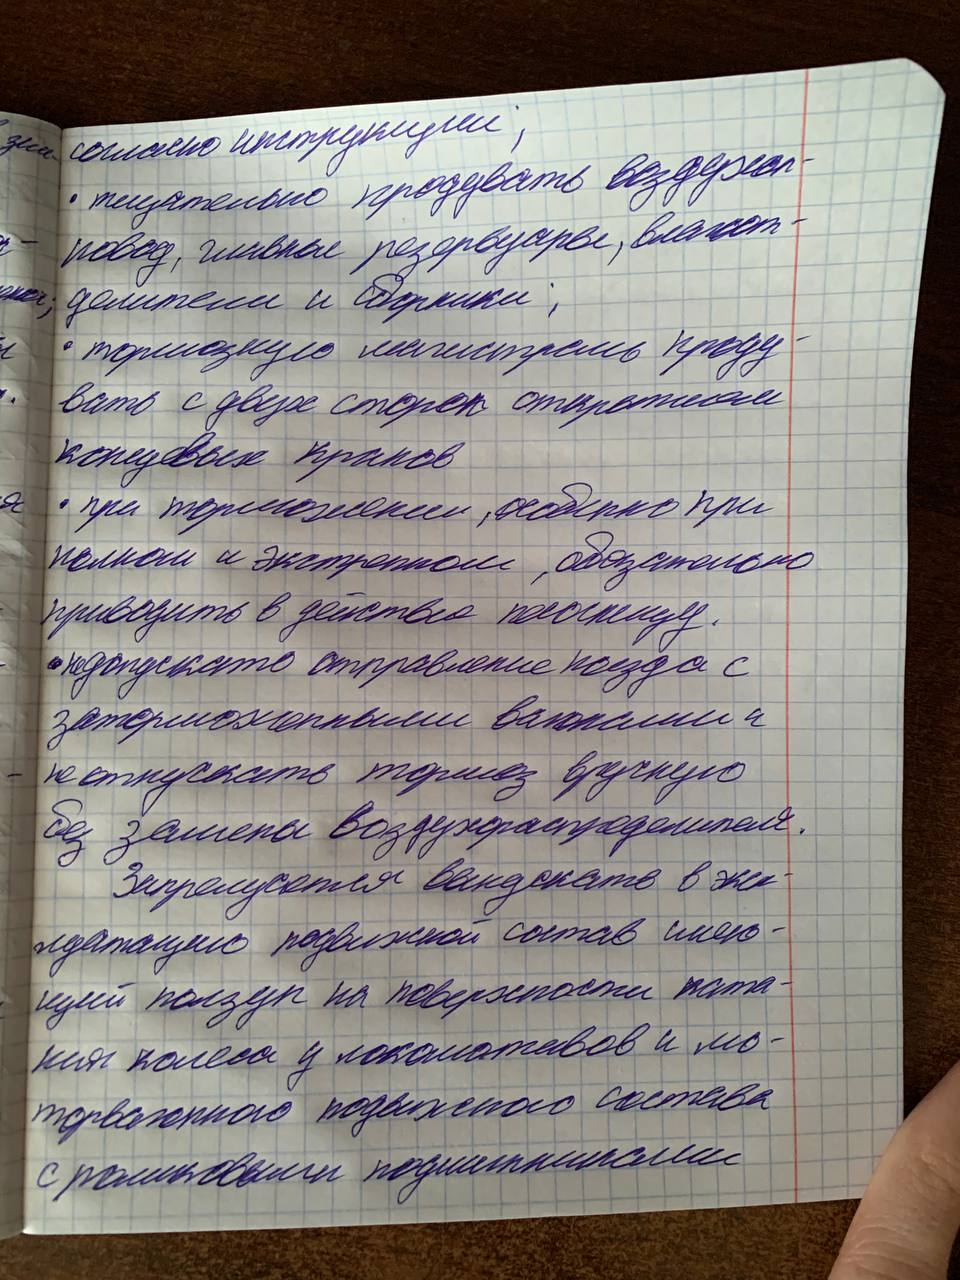 согласно инструкции;
• тщательно продувать воздухоп-
ровод, главные резервуары, влагот-
делители и сборники;
• тормозную магистраль проду-
вать с двух сторон открытием
концевых кранов
• при торможении, особенно при
полном и экстренном, обязательно
приводить в действие песочницу.
• недопускать отправление поезда с
заторможенными вагонами и
не отпускать тормоз вручную
без замены воздухораспределителя.
Запрещается выпускать в экс-
плуатацию подвижной состав имею-
щий ползун на поверхности ката-
ния колеса у локомотивов и мо-
торвагонного подвижного состава
с роликовыми подшипниками